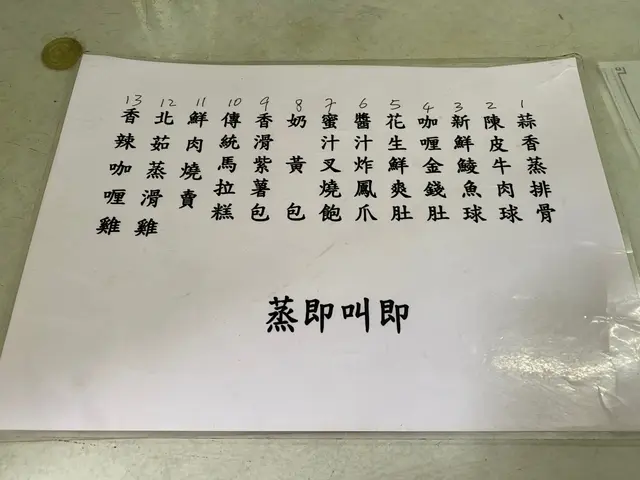 1 蒜香蒸排骨
2 陳皮牛肉球
3 新鮮鯪魚球
4 咖喱金錢肚
5 花生鮮爽肚
6 醬汁炸鳳爪
7 蜜汁叉燒飽
8 奶黃包
9 香滑紫薯包
10 傳統馬拉糕
11 鮮肉燒賣
12 北茹蒸滑雞
13 香辣咖喱雞
蒸即叫即